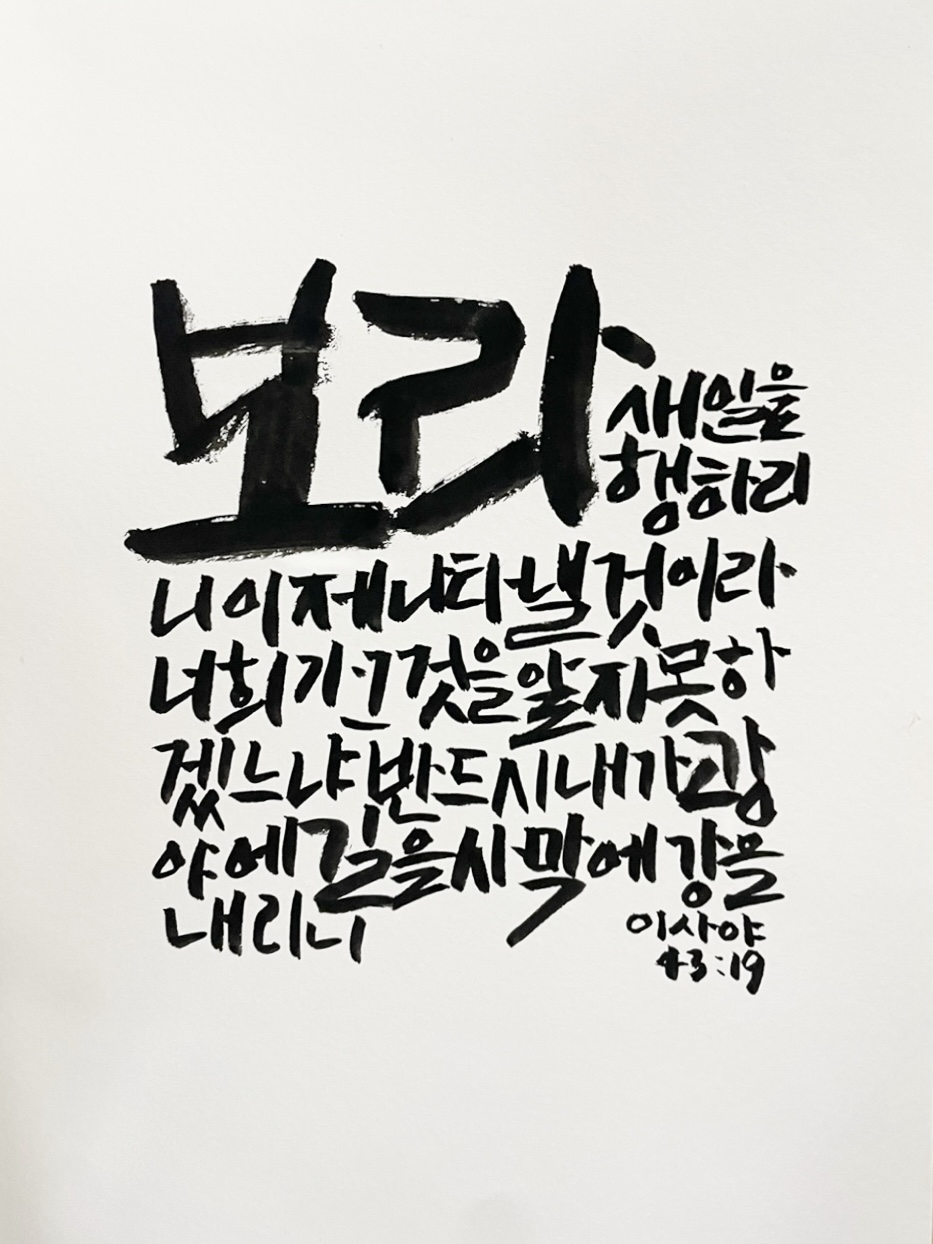 보라
새일을
행하리
니 이제 나타낼 것이라
너희가 그것을 알지 못하
겠느냐 반드시 내가 광
야에 길을 사막에 강을
내리니
이사야
43:19